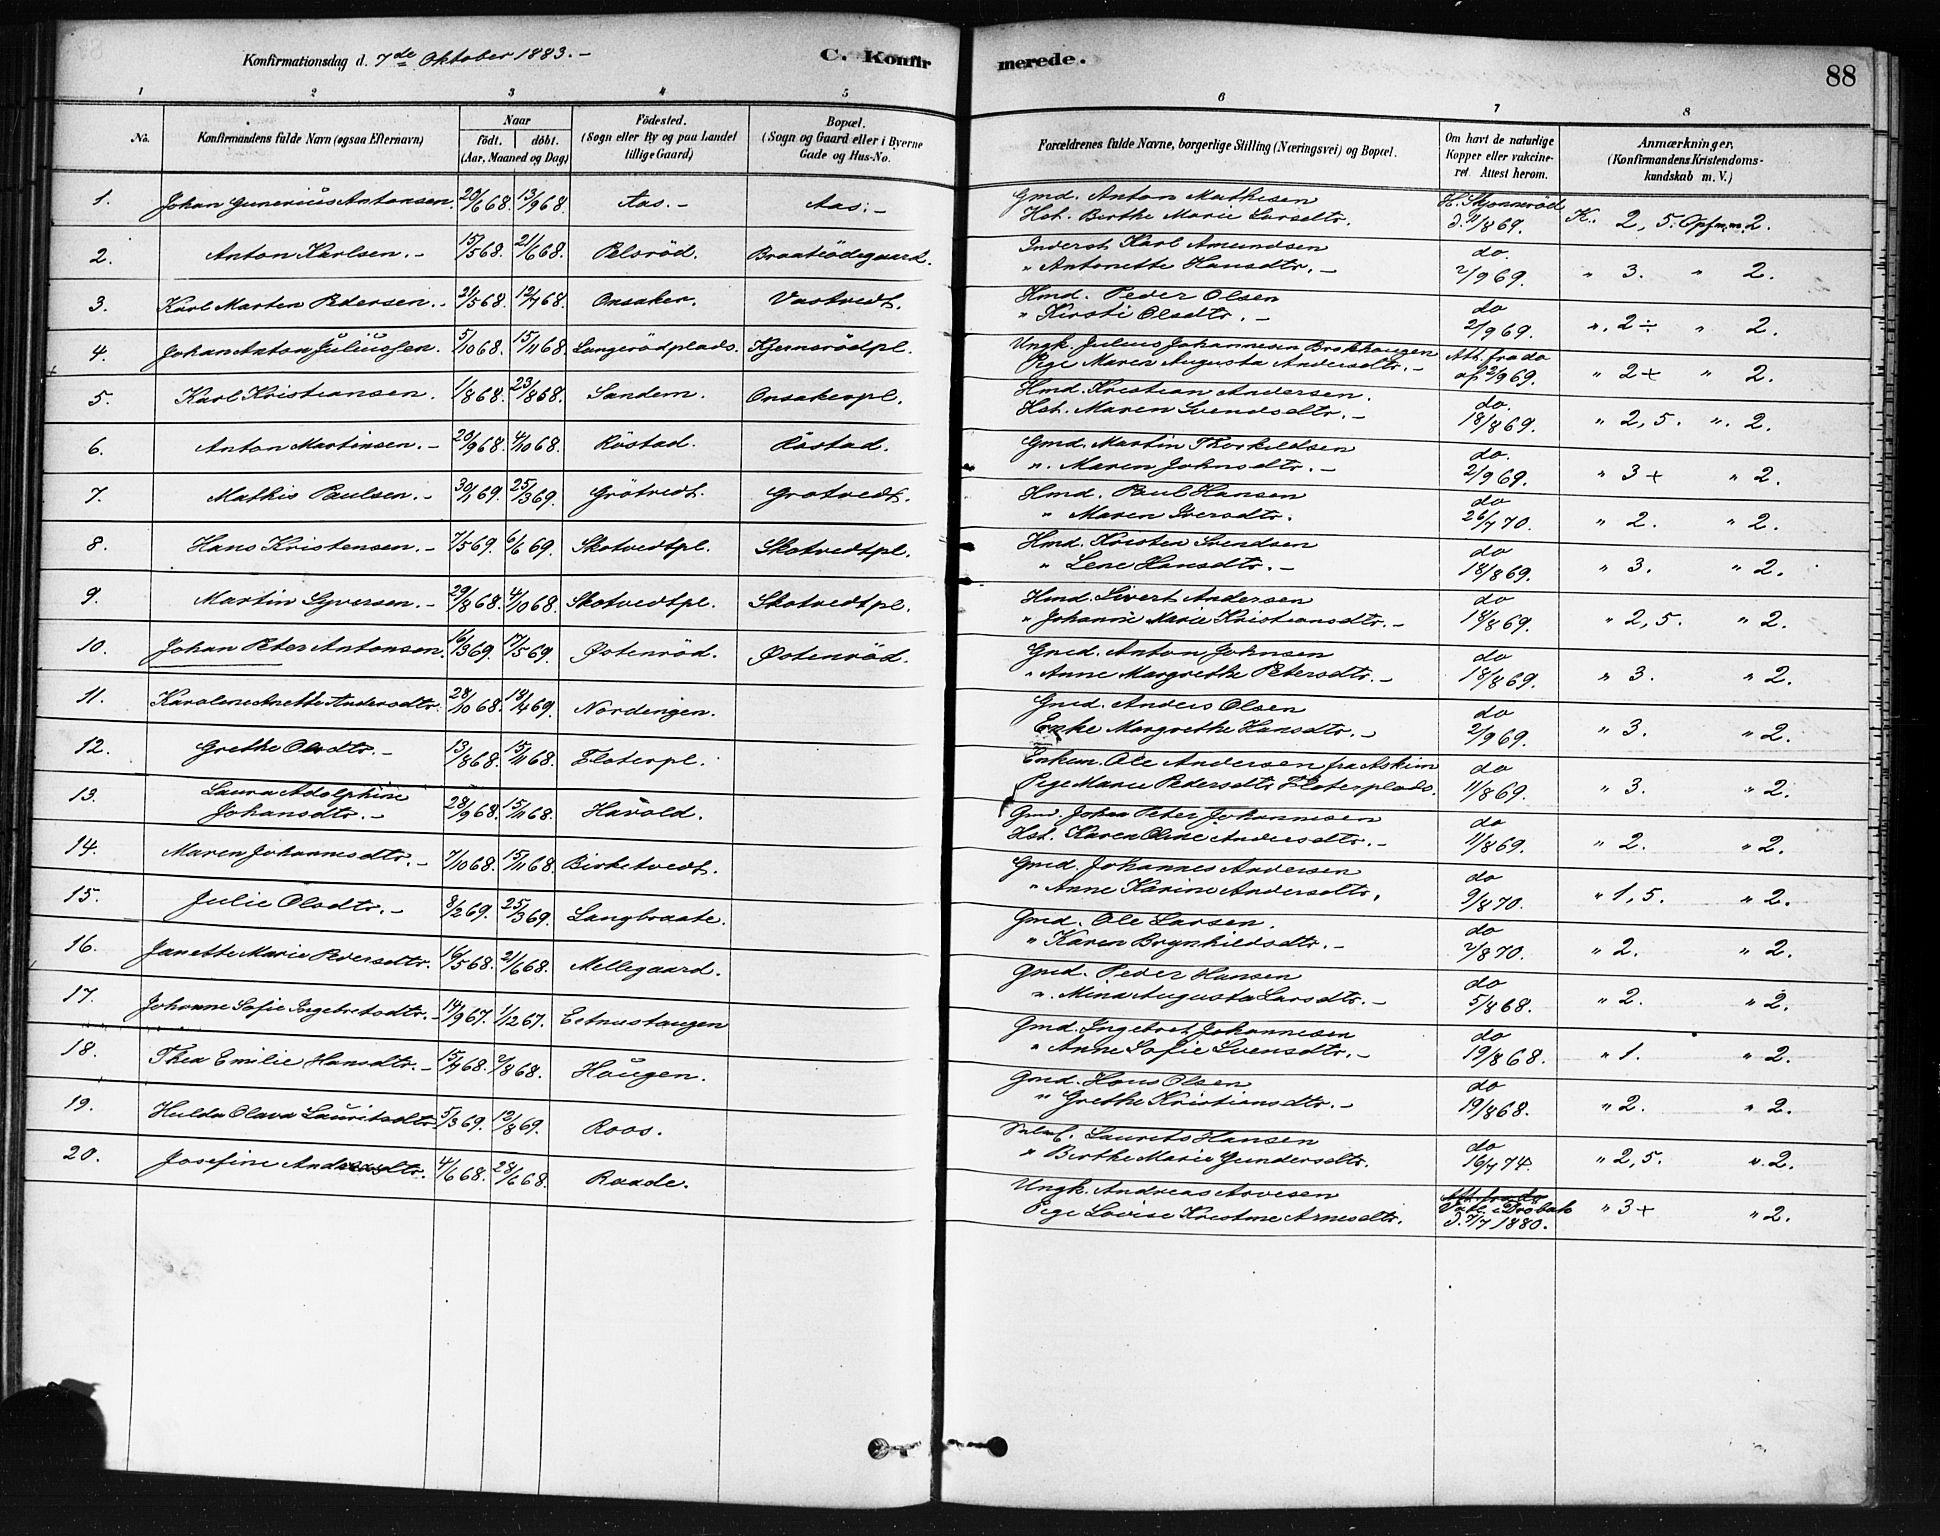 Konfirmationsdag d. 7de Oktober 1883.- C. Konfirmerede. 88
1 2 3 4 5 6 7 8
No. Konfirmandens fulde Navn (ogsaa Efternavn) Naar födt. döbt. (Aar, Maaned og Dag) Födested. (Sogn eller By og paa Landet tillige Gaard) Bopæl. (Sogn og Gaard eller i Byerne Gade og Hus-No. Forældrenes fulde Navne, borgerlige Stilling (Næringsvei) og Bopæl. Om havt de naturlige Kopper eller vakcineret. Attest herom. Anmærkninger. (Konfirmandens Kristendomskundskab m. V.)
1. Johan Gunerius Antonsen. 20/6 68. 13/9 68. Aas.- Aas.- Gmd. Anton Mathisen H. Skjonnerød K. 2,5. Opf. m.m. 2.
Hst. Berthe Marie Larsdtr. d. 11/8 69.
2. Anton Karlsen.- 15/5 68. 21/6 68. Pelsröd. Braatiödegaard. Inderst Karl Amundsen do.
" Antonette Hansdtr.- 2/9 69. " 3. " 2.
3. Karl Marten Pedersen.- 24/5 68. 12/7 68. Onsaker. Vastvedt. Hmd. Peder Olsen do
" Kirsti Olsdtr.- 2/9 69. ". 2÷ " 2.
4. Johan Anton Juliussen. 5/10 68. 15/11 68. Langerödplads. Kjernsrödpl. Ungk. Julius Johannesen Brekhaugen Att. fra do
Pige Maren Augusta Andersdtr.- af 2/9 69. " 2+ " 2.
5. Karl Kristiansen. 1/8 68. 23/8 68. Sandem. Onsakerpl. Hmd. Kristian Andersen. do.
Hst. Maren Svendsdtr.- 18/8 69. " 2,5. ". 2.
6. Anton Martinsen.- 20/9 68. 4/10 68. Röstad. Röstad. Gmd. Martin Thorkildsen do.
". Maren Johnsdtr.- 2/9 69. " 3+ " 2.
7. Mathis Paulsen.- 30/1 69. 25/3 69. Grötvedt. Grotvedt. Hmd. Paul Hansen do
" Maren Iversdtr. 26/7 70. " 2. " 2.
8. Hans Kristensen.- 7/5 69. 6/6 69. Skotvedtpl. Skotvedtpl. Hmd. Kristen Svendsen do
" Lene Hansdtr.- 18/8 69. " 3. " 2.
9. Martin Syversen.- 29/8 68. 4/10 68. Skotvedtpl. Skotvedtpl. Hmd. Sivert Andersen do
" Johanne Marie Kristiansdtr.- 18/8 69. " 2,5. " 2.
10. Johan Peter Antonsen. 16/3 69. 17/5 69. Østenröd. Østenröd. Gmd. Anton Johnsen do
" Anne Margrethe Petersdtr.- 18/8 69. " 3. " 2.
11. Karolene Anette Andersdtr. 28/10 68. 18/4 69. Nordengen. Gmd. Anders Olsen do
Enke Margrethe Hansdtr.- 2/9 69. " 3. " 2.
12. Grethe Olsdtr.- 13/8 68. 15/11 68. Floterpl. Enkem. Ole Andersen fra Askim do
Pige Marie Pedersdtr. Floterplads. 11/8 69. " 3. " 2.
13. Laura Adolphine
Johansdtr.- 28/9 68. 15/11 68. Havold. Gmd. Johan Peter Johannesen do
Hst. Karen Oline Andersdtr.- 11/8 69. " 2. " 2.
14. Maren Johannesdtr.- 7/10 68. 15/11 68. Birketvedt. Gmd. Johannes Andersen do
" Anne Karine Andersdtr. 9/8 70. " 1,5. " 2.
15. Julie Olsdtr.- 8/2 69. 25/3 69. Langbraate. Gmd. Ole Larsen. do
" Karen Brynhildsdtr.- 2/8 70. " 2. " 2.
16. Janette Marie Pedersdtr. 16/5 68. 21/6 68. Mellegaard. Gmd. Peder Hansen do
". Mina Augusta Larsdtr.- 5/8 68. " 2. " 2.
17. Johanne Sofie Ingebretsdtr.- 14/9 67. 1/12 67. Eetnestangen Gmd. Ingebret Johannesen do
" Anne Sofie Svensdtr.- 19/8 68. " 1. " 2.
18. Thea Emilie Hansdtr.- 15/7 68. 2/8 68. Haugen. Gmd. Hans Olsen do
" Grethe Kristiansdtr.- 19/8 68. " 2. " 2.
19. Hulda Olava Lauritsdtr 5/3 69. 12/8 69. Roos. Laurits Hansen do
" Berthe Marie Gundersdtr. 16/7 74. " 2,5. ". 2.
20. Josefine Andreasdtr. 4/6 68. 28/6 68. Raade. Ungk. Andreas Arvesen Att. fra do
Pige Lovise Kristine Arnesdtr. Vatl. i Drøbak " 3+ " 2.
d. 7/7 1880.